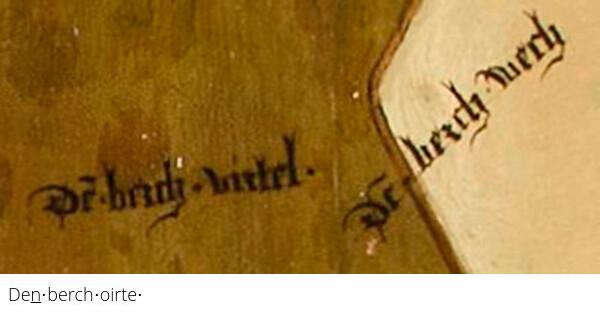 Dē·berch·virtel·
Dē·berch·wech
Den·berch·oirte·